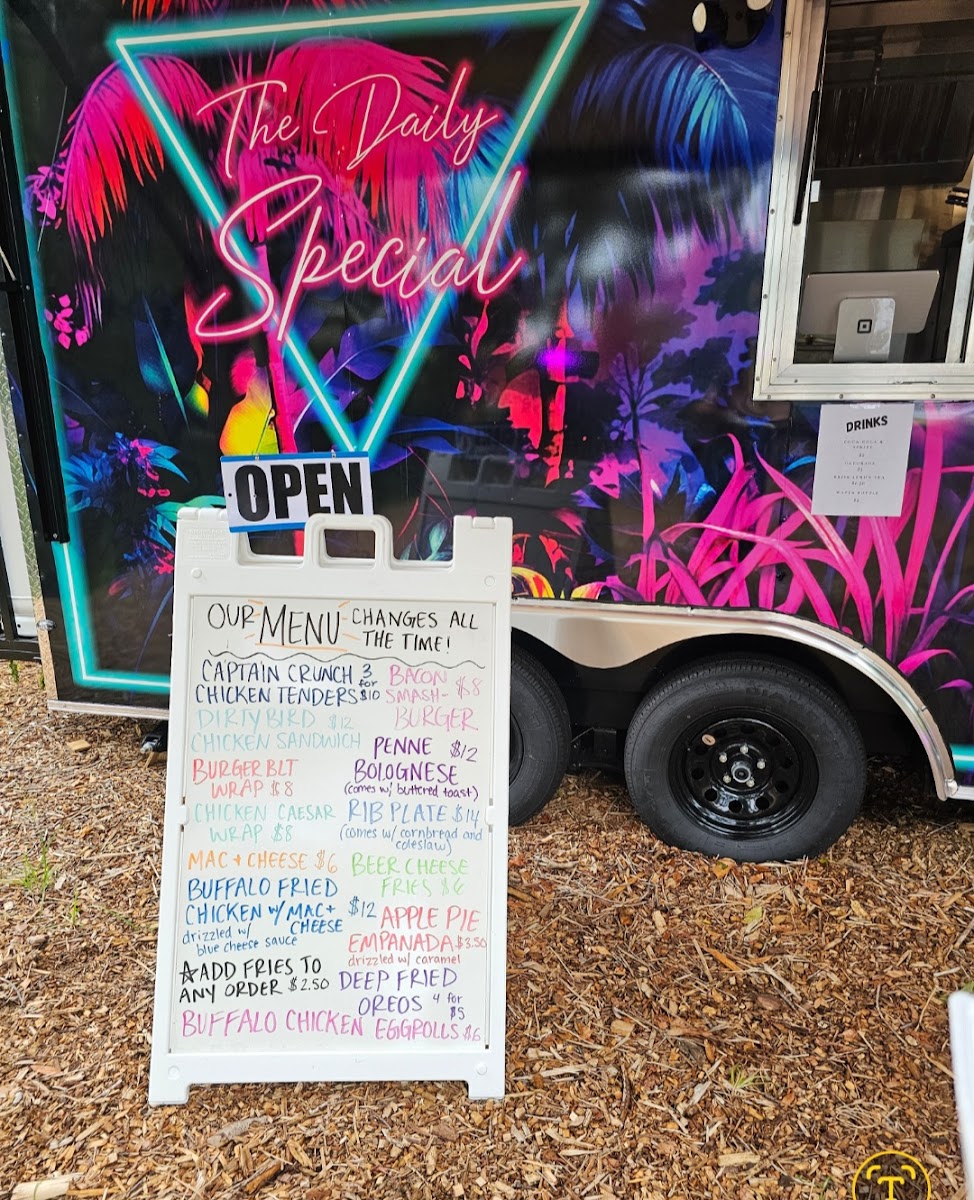 The Daily
Special
OPEN
DRINKS
OUR MENU CHANGES ALL
THE TIME!
CAPTAIN CRUNCH 3
CHICKEN TENDERS for $10
DIRTY BIRD $12
CHICKEN SANDWICH
BURGER BLT
WRAP $8
CHICKEN CAESAR
WRAP $8
MAC + CHEESE $6
BUFFALO FRIED
CHICKEN W/ MAC +
CHEESE $12
drizzled w/
blue cheese sauce
☆ADD FRIES TO
ANY ORDER $2.50
BACON
SMASH- $8
BURGER
PENNE $12
BOLOGNESE
(comes w/ buttered toast)
RIB PLATE $14
(comes w/ cornbread and
coleslaw)
BEER CHEESE
FRIES $6
APPLE PIE
EMPANADA $3.50
drizzled w/ caramel
DEEP FRIED
OREOS 4 for
$5
BUFFALO CHICKEN EGGROLLS $6
T